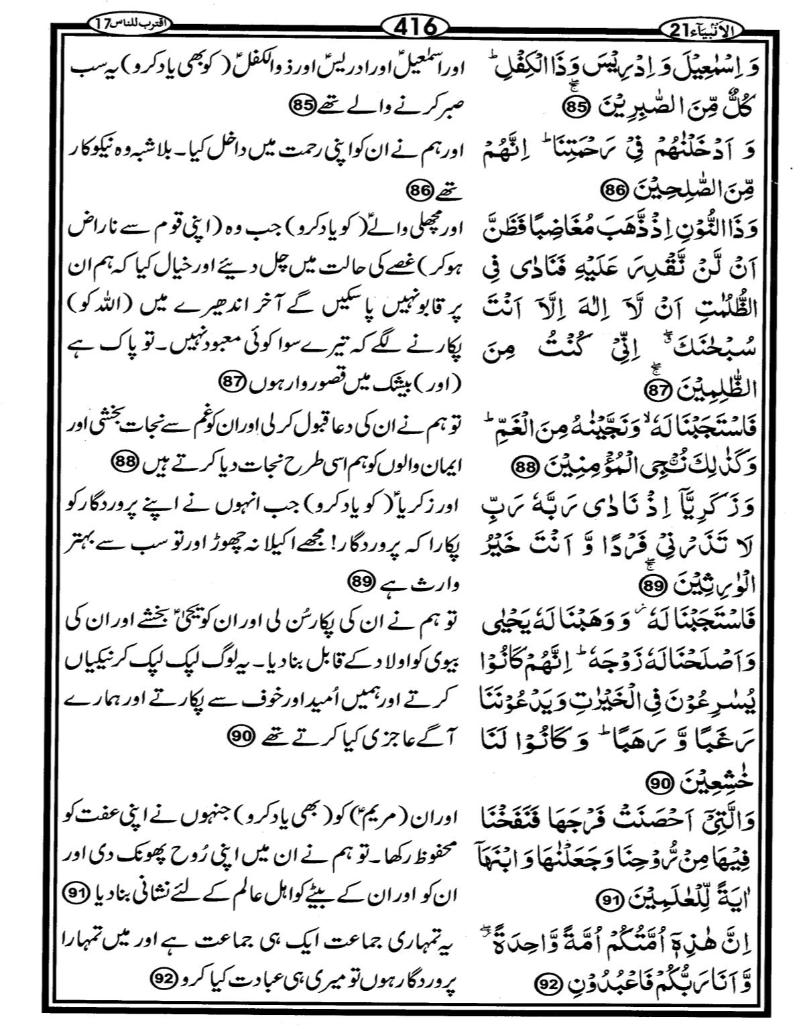 الانبیاء 21
416
اقترب للناس 17
وَ اِسْمٰعِيْلَ وَ اِدْرِيْسَ وَذَا الْكِفْلِ ؕ
كُلٌّ مِّنَ الصّٰبِرِيْنَ ۚۖ 85
وَ اَدْخَلْنٰهُمْ فِيْ رَحْمَتِنَا ؕ اِنَّهُمْ
مِّنَ الصّٰلِحِيْنَ 86
وَذَا النُّوْنِ اِذْ ذَّهَبَ مُغَاضِبًا فَظَنَّ
اَنْ لَّنْ نَّقْدِرَ عَلَيْهِ فَنَادٰى فِي
الظُّلُمٰتِ اَنْ لَّاۤ اِلٰهَ اِلَّاۤ اَنْتَ
سُبْحٰنَكَ ۖۗ اِنِّيْ كُنْتُ مِنَ
الظّٰلِمِيْنَ ۚۖ 87
فَاسْتَجَبْنَا لَهٗ ۙ وَنَجَّيْنٰهُ مِنَ الْغَمِّ ؕ
وَكَذٰلِكَ نُـْۨجِي الْمُؤْمِنِيْنَ 88
وَزَكَرِيَّاۤ اِذْ نَادٰى رَبَّهٗ رَبِّ
لَا تَذَرْنِيْ فَرْدًا وَّ اَنْتَ خَيْرُ
الْوٰرِثِيْنَ ۚۖ 89
فَاسْتَجَبْنَا لَهٗ ؗ وَوَهَبْنَا لَهٗ يَحْيٰى
وَاَصْلَحْنَا لَهٗ زَوْجَهٗ ؕ اِنَّهُمْ كَانُوْا
يُسٰرِعُوْنَ فِي الْخَيْرٰتِ وَيَدْعُوْنَنَا
رَغَبًا وَّ رَهَبًا ؕ وَ كَانُوْا لَنَا
خٰشِعِيْنَ 90
وَالَّتِيْۤ اَحْصَنَتْ فَرْجَهَا فَنَفَخْنَا
فِيْهَا مِنْ رُّوْحِنَا وَجَعَلْنٰهَا وَابْنَهَاۤ
اٰيَةً لِّلْعٰلَمِيْنَ 91
اِنَّ هٰذِهٖۤ اُمَّتُكُمْ اُمَّةً وَّاحِدَةً ۖؗ
وَّاَنَا رَبُّكُمْ فَاعْبُدُوْنِ 92
اور اسمٰعیلؑ اور ادریسؑ اور ذوالکفلؑ (کو بھی یاد کرو) یہ سب
صبر کرنے والے تھے 85
اور ہم نے ان کو اپنی رحمت میں داخل کیا۔ بلاشبہ وہ نیکوکار
تھے 86
اور مچھلی والےؑ (کو یاد کرو) جب وہ (اپنی قوم سے ناراض
ہو کر) غصے کی حالت میں چل دیئے اور خیال کیا کہ ہم ان
پر قابو نہیں پا سکیں گے آخر اندھیرے میں (اللہ کو)
پکارنے لگے کہ تیرے سوا کوئی معبود نہیں۔ تو پاک ہے
(اور) بیشک میں قصور وار ہوں 87
تو ہم نے ان کی دعا قبول کر لی اور ان کو غم سے نجات بخشی اور
ایمان والوں کو ہم اسی طرح نجات دیا کرتے ہیں 88
اور زکریاؑ (کو یاد کرو) جب انہوں نے اپنے پروردگار کو
پکارا کہ پروردگار! مجھے اکیلا نہ چھوڑ اور تو سب سے بہتر
وارث ہے 89
تو ہم نے ان کی پکار سُن لی اور ان کو یحییٰؑ بخشے اور ان کی
بیوی کو اولاد کے قابل بنا دیا۔ یہ لوگ لپک لپک کر نیکیاں
کرتے اور ہمیں اُمید اور خوف سے پکارتے اور ہمارے
آگے عاجزی کیا کرتے تھے 90
اور ان (مریمؑ) کو (بھی یاد کرو) جنہوں نے اپنی عفت کو
محفوظ رکھا۔ تو ہم نے ان میں اپنی رُوح پھونک دی اور
ان کو اور ان کے بیٹے کو اہل عالم کے لئے نشانی بنا دیا 91
یہ تمہاری جماعت ایک ہی جماعت ہے اور میں تمہارا
پروردگار ہوں تو میری ہی عبادت کیا کرو 92